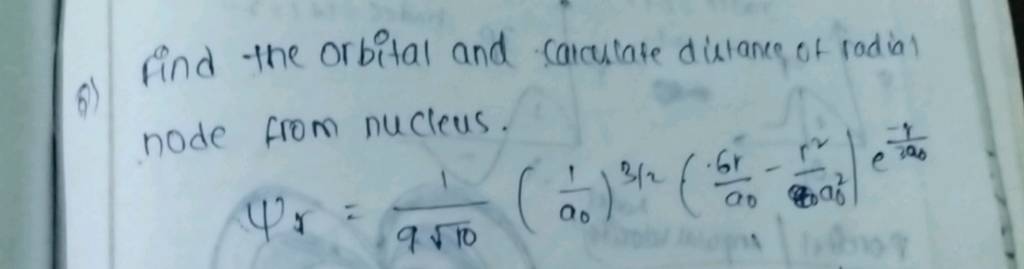 6) Find the orbital and calculate distance of radial
node from nucleus.
ψr = 1/(9√10) (1/a₀)^3/2 (6r/a₀ - r²/a₀²) e^(-r/3a₀)